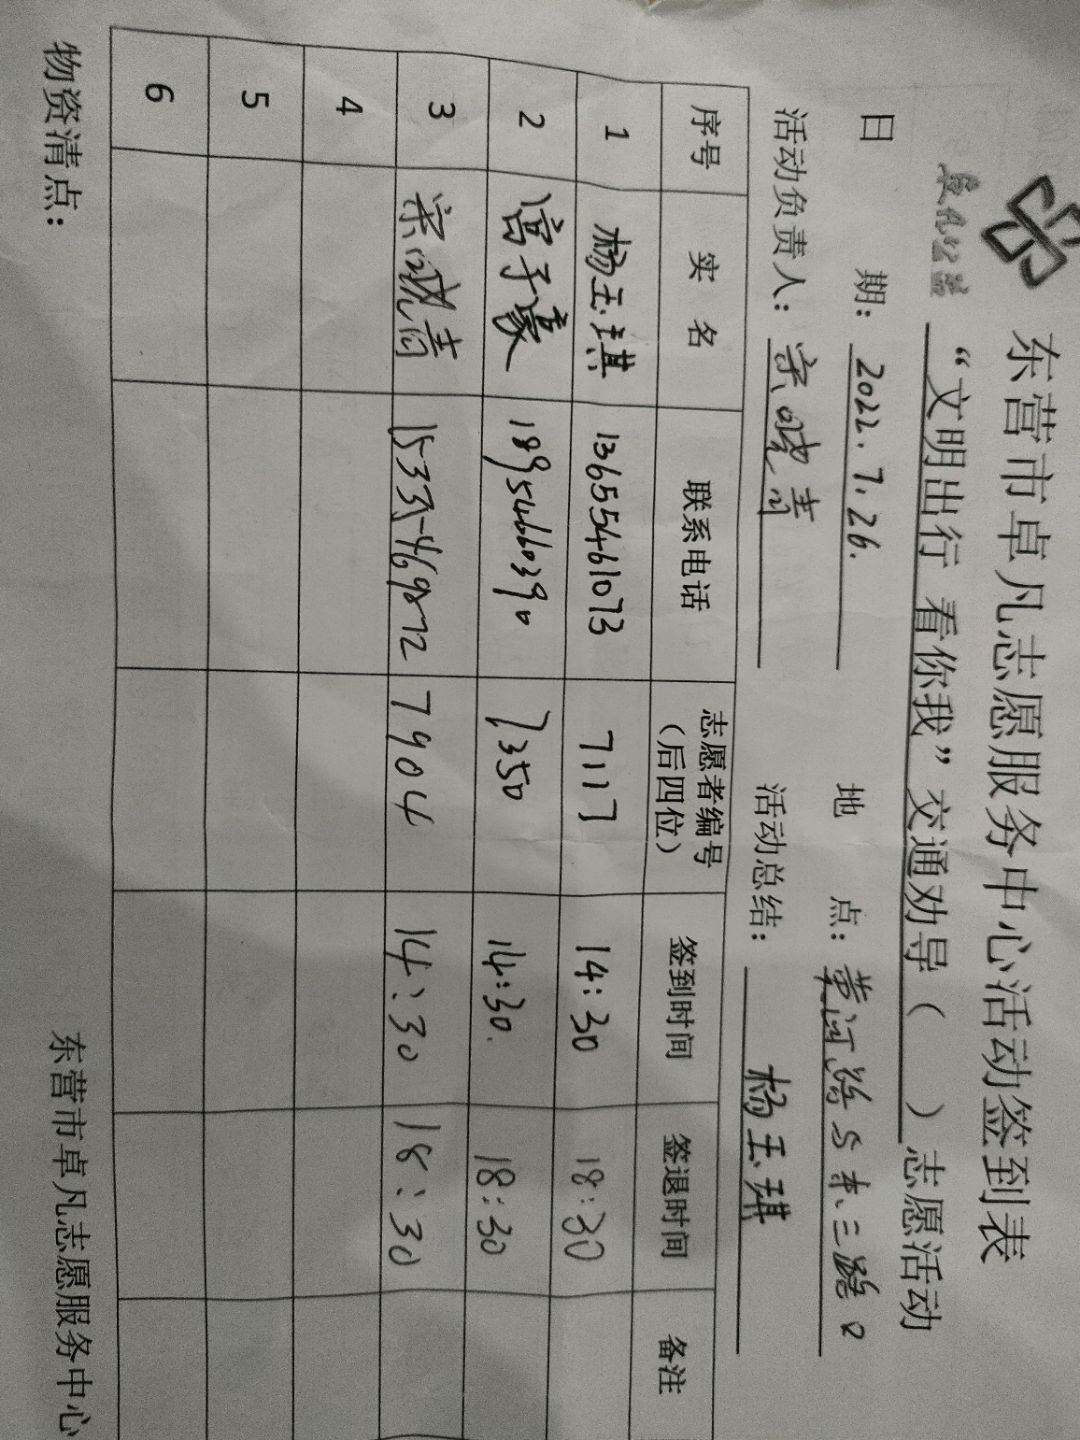 东营市卓凡志愿服务中心活动签到表
“文明出行 看你我”交通劝导（ ）志愿活动
日 期：2022.7.26. 地 点：黄河路与东三路口
活动负责人：宗晓青 活动总结：杨玉琪
序号 实名 联系电话 志愿者编号（后四位） 签到时间 签退时间 备注
1 杨玉琪 13655461073 7117 14:30 18:30
2 宫子豪 18954660390 7350 14:30. 18:30
3 宗晓青 15335469872 7904 14:30 18:30
4
5
6
物资清点： 东营市卓凡志愿服务中心